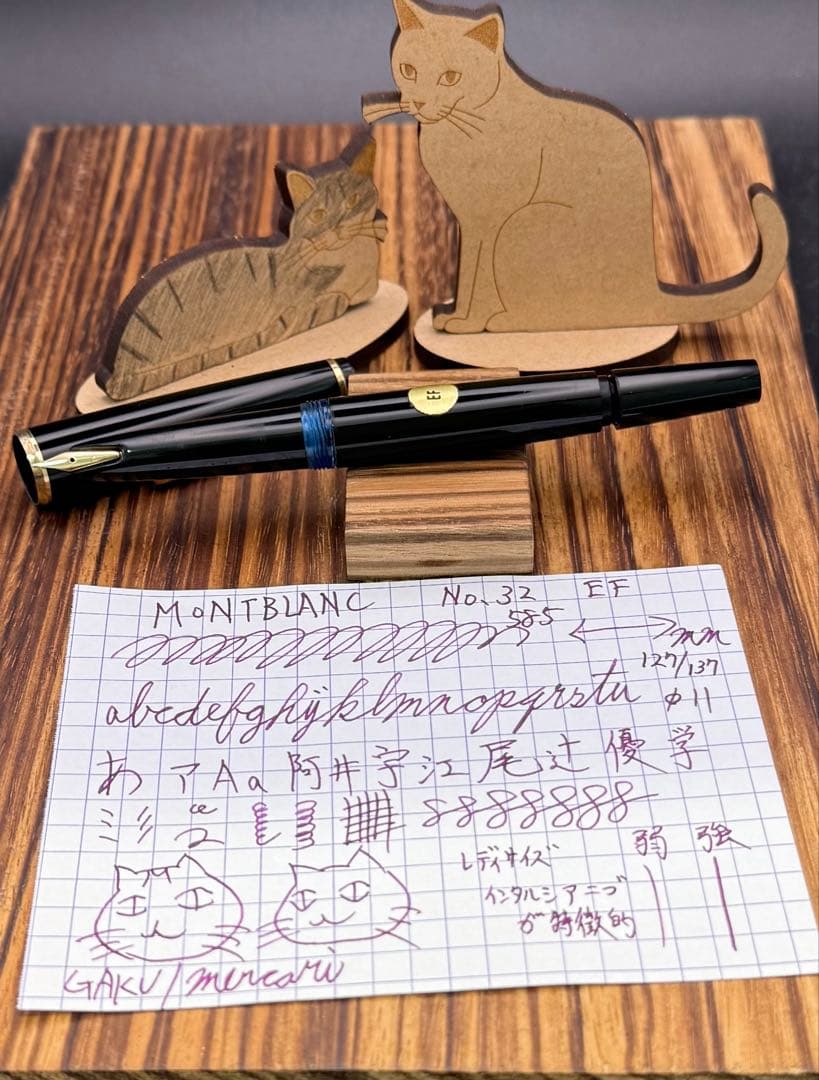 EF
MONTBLANC No.32 EF
585
mm
127/137
φ11
abcdefghijklmnopqrstu
あ ア A a 阿 井 宇 江 尾 辻 優 学
8888888
弱 強
レディサイズ
インタルシアニブ
が特徴的
GAKU/mercari